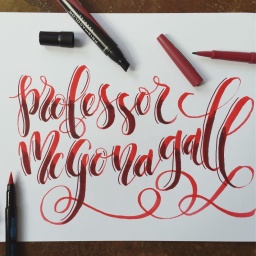 professor
McGonagall